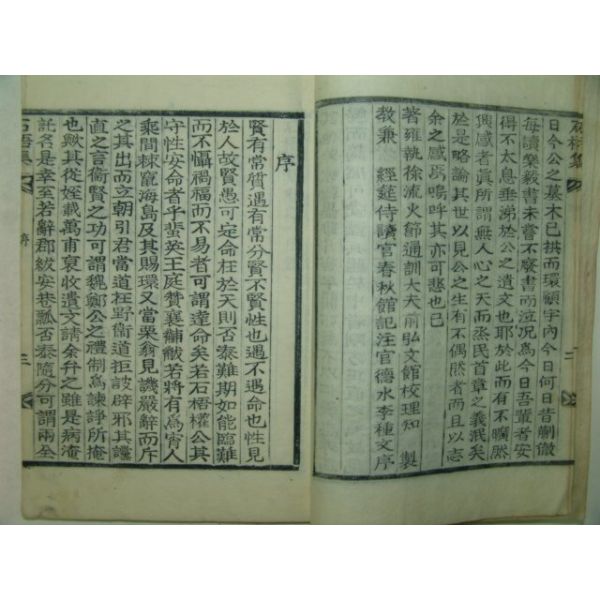 日今公之墓木已拱而環顧宇内今日何日昔蒯徹
每讀樂毅書未嘗不廢書而泣况爲今日吾輩者安
得不太息垂涕於公之遺文也耶於此而有不矍然
興感者眞所謂無人心之天而烝民首章之義泯矣
於是略論其世以見公之生有不偶然者而且以志
余之感焉嗚呼其亦可悲也已
著雍執徐流火節通訓大夫前弘文館校理知 製
敎兼 經筵侍讀官春秋館記注官德水李種文序
二
序
賢有常質遇有常分賢不賢性也遇不遇命也性見
於人故賢愚可定命枉於天則否泰難期如能臨難
而不懾禍福而不易者可謂達命矣若石梧權公其
守性安命者乎蜚英王庭贊襄黼黻若將有爲宵人
乘間棘竄海島及其賜環又當栗翁見譏嚴辭而斥
之其出而立朝引君當道枉野衛道拒詖辟邪其讜
直之言衛賢之功可謂魏鄭公之禮制爲諫諍所掩
也歟其從姪載萬甫裒收遺文請余弁之雖是病淹
託名是幸至若辭郡紱安巷瓢否泰隨分可謂兩全
石梧集
序
三